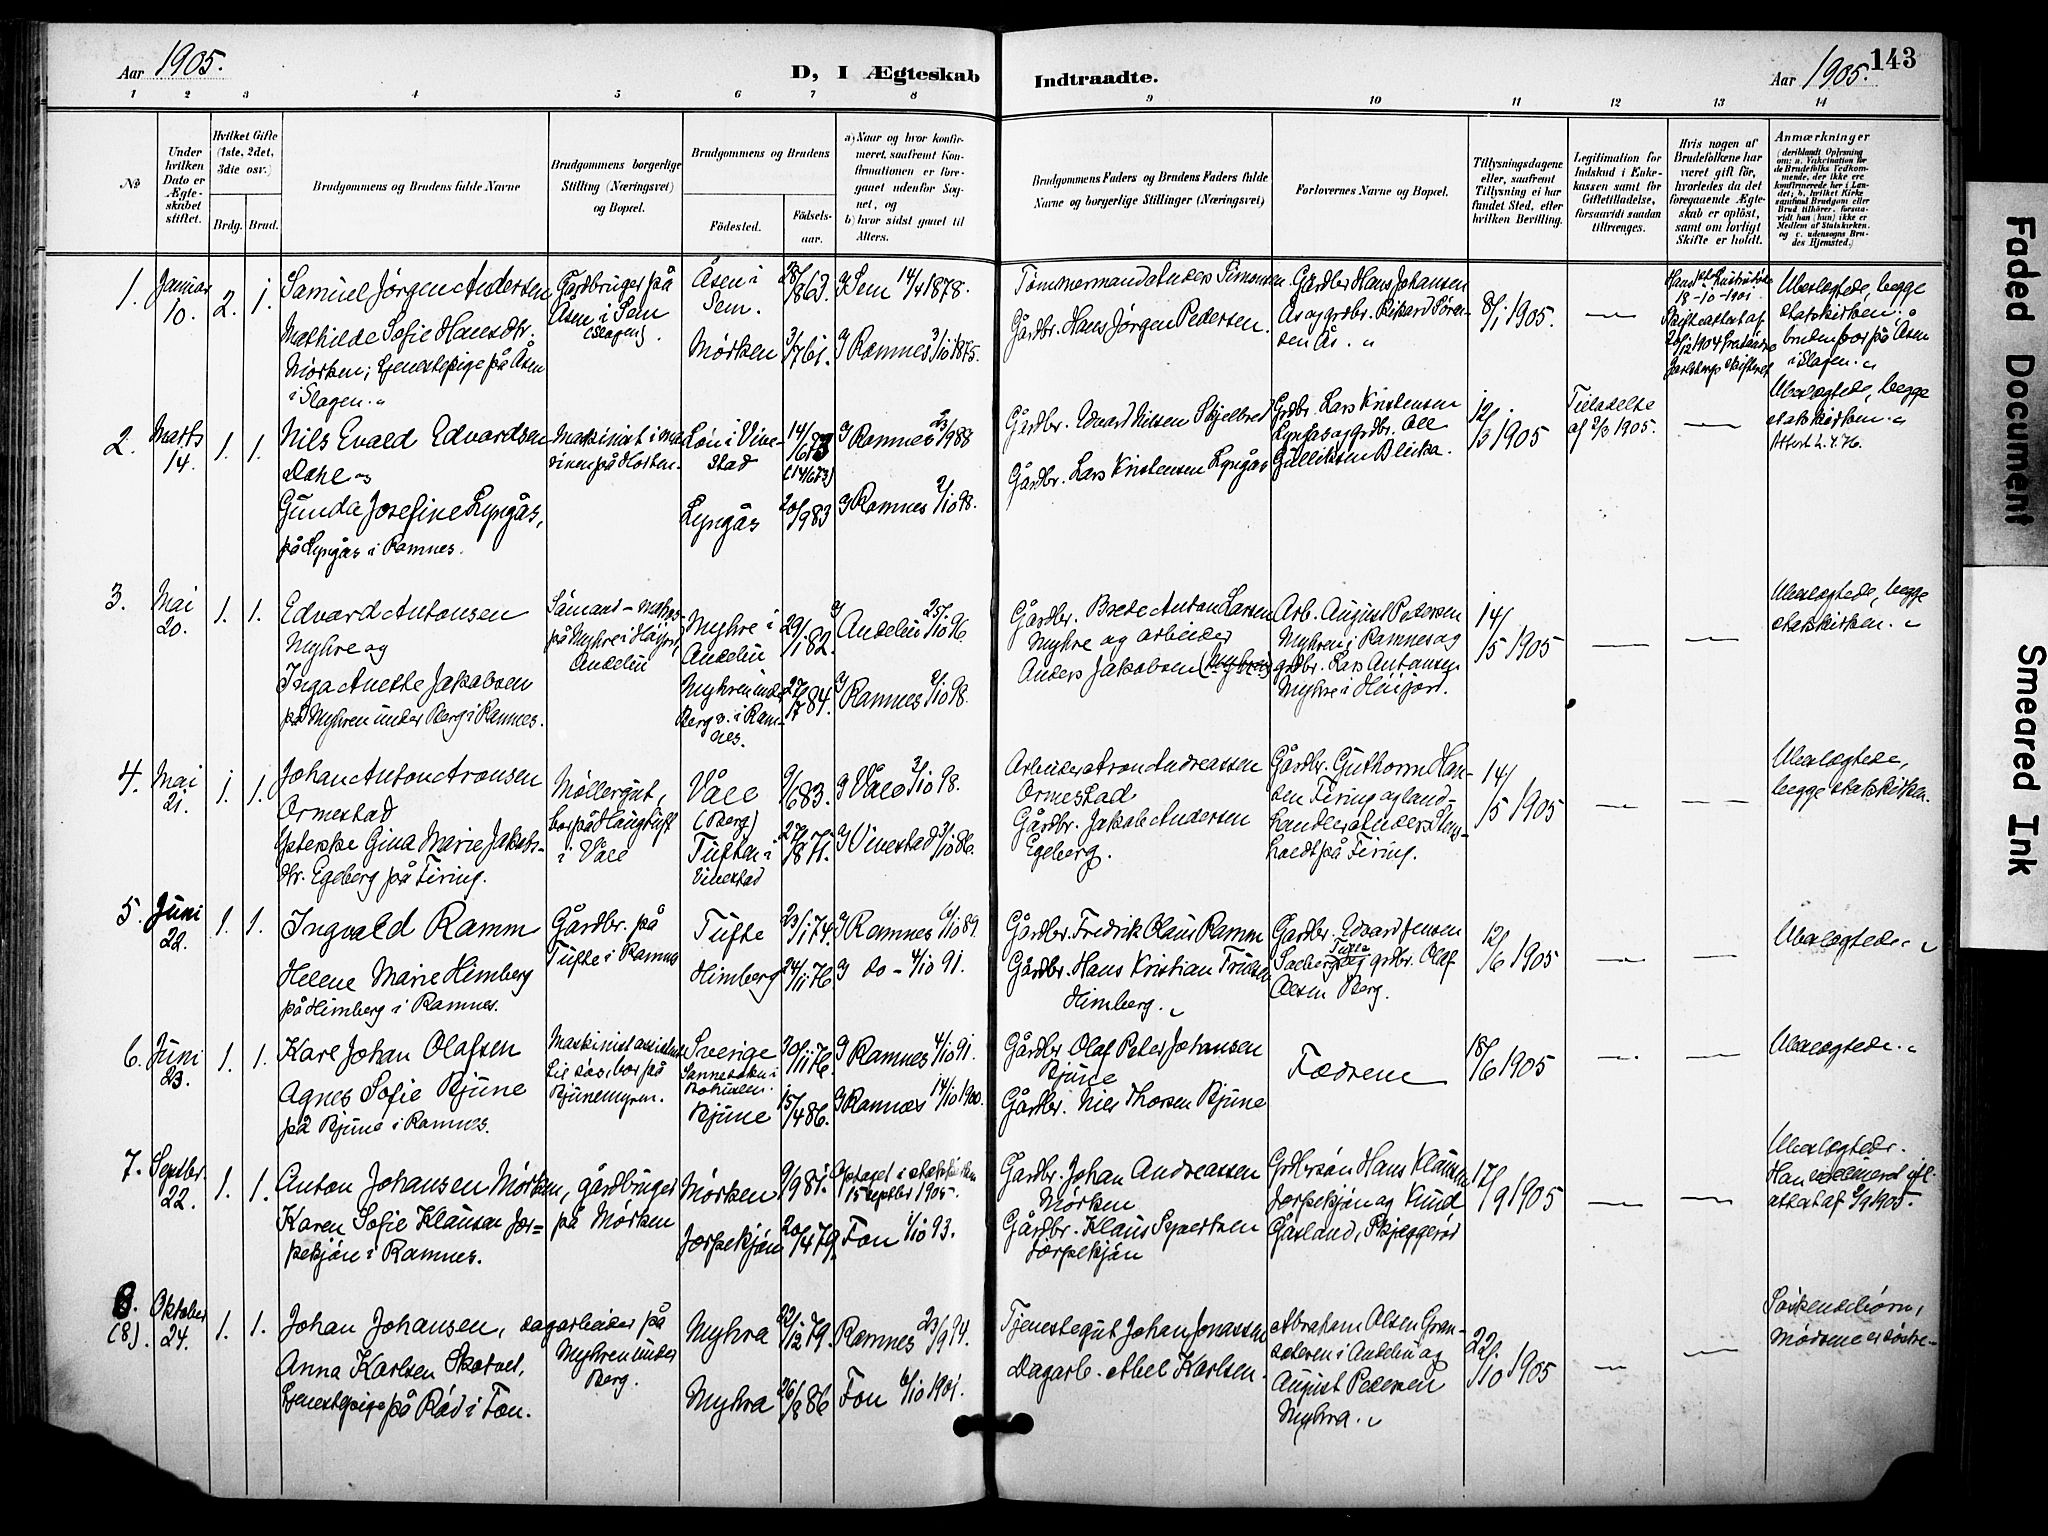 Aar 1905.
D, I Ægteskab
Indtraadte.
Aar 1905.
143
1 2 3 4 5 6 7 8 9 10 11 12 13 14
№
Under hvilken Dato er Ægteskabet stiftet.
Hvilket Gifte (1ste, 2det, 3die osv.)
Brdg. Brud.
Brudgommens og Brudens fulde Navne
Brudgommens borgerlige Stilling (Næringsvei) og Bopæl.
Brudgommens og Brudens
Fødested.
Fødselsaar.
a) Naar og hvor konfirmeret, saafremt Konfirmationen er foregaaet udenfor Sognet, og
b) hvor sidst gaaet til Alters.
Brudgommens Faders og Brudens Faders fulde Navne og borgerlige Stillinger (Næringsvei)
Forlovernes Navne og Bopæl.
Tillysningsdagene eller, saafremt Tillysning ei har fundet Sted, efter hvilken Bevilling.
Legitimation for Indskud i Enkekassen samt for Giftetilladelse, forsaavidt saadan tiltrænges.
Hvis nogen af Brudefolkene har været gift før, hvorledes da det foregaaende Ægteskab er opløst, samt om lovligt Skifte er holdt.
Anmærkninger
(deriblandt Oplysning om: a. Vakcination for de Brudefolks Vedkommende, der ikke ere konfirmerede her i Landet; b. hvilket Kirkesamfund Brudgom eller Brud tilhører, forsaavidt han (hun) ikke er Medlem af Statskirken, og c. udensogns Brudes Hjemsted.)
1. Januar 10. 2. 1.
Samuel Jørgen Andersen
Mathilde Sofie Hansdtr.
Mørken, tjenestepige på Åsen
i Slagen.
Gårdbruger på
Åsen i Sem
(Slagen).
Åsen i
Sem.
Mørken
28/1863.
3/761.
g Sem 14/4 1878.
g Ramnes 3/10 1875.
Tømmermand Anders Simonsen
Gårdbr. Hans Jørgen Pedersen.
Gårdbr Hans Johansen
Ås og grdbr. Rikard Søren-
sen Ås.
8/1 1905.
—
18-10-1901
Skifteattest af
Ubeslægtede, begge
statskirken.
bruden bor på Åsen
i Slagen.
2. Marts 14. 1. 1.
Nils Evald Edvardsen
Dahl og
Gunda Josefine Lyngås,
på Lyngås i Ramnes.
Maskinist i ma-
rinen på Horten.
Løn i Vive-
stad
Lyngås
14/673
(14/673)
20/983
g Ramnes 23/9 88
g Ramnes 2/10 98.
Gårdbr. Edvard Nilsen Skjelbred
Gårdbr. Lars Kristensen Lyngås
Grdbr. Lars Kristensen
Lyngås og grdbr. Ole
Gulliksen Blika.
12/3 1905
Tilladelse
af 2/3 1905.
—
Ubeslægtede, begge
statskirken.
3. Mai 20. 1. 1.
Edvard Antonsen
Myhre og
Inga Anette Jakobsen
på Myhren under Berg i Ramnes.
Sømand
på Myhre i Høijord,
Andebu
Myhre i
Andebu
Myhren under
Berg i Ram-
nes.
29/182.
27/784.
g Andebu 25/10 96
g Ramnes 2/10 98.
Gårdbr. Brede Anton Larsen
Myhre og arbeider
Anders Jakobsen (Myhren)
Arb. August Pedersen
Myhren i Ramnes og
grdbr. Lars Antonsen
Myhre i Høijord.
14/5 1905
—
—
Ubeslægtede, begge
statskirken.
4. Mai 21. 1. 1.
Johan Anton Aronsen
Ormestad
Gina Marie Jakobs-
dtr. Egeberg på Firing.
Møllergut,
bor på Haugtuft
i Våle
Våle
(Berg)
Tuften i
Vivestad
9/683.
27/871.
g Våle 3/10 98.
g Vivestad 3/10 86.
Arbeider Aron Andreassen
Ormestad
Gårdbr. Jakob Andersen
Egeberg.
Gårdbr. Guthorm Han-
sen Firing og land-
handler Anders Sten-
holdt på Firing.
14/5 1905
—
— —
Ubeslægtede,
begge statskirken.
5. Juni 22. 1. 1.
Ingvald Ramm
Helene Marie Himberg
på Himberg i Ramnes.
Gårdbr. på
Tufte i Ramnes
Tufte
Himberg
23/174.
24/1176
g Ramnes 6/10 89.
g do - 4/10 91.
Gårdbr. Fredrik Olaus Ramm
Gårdbr. Hans Kristian
Himberg.
Gårdbr. Edvard Jensen
Tufte
Solberg og grdbr. Olaf
Olsen Berg.
12/6 1905
—
—
Ubeslægtede.
6. Juni 23. 1. 1.
Karl Johan Olafsen
Agnes Sofie Bjune
på Bjune i Ramnes.
Maskinistassistent
til søs, bor på
Bjunemyren.
Sverige
Sannesokn i
Bohuslen.
Bjune
20/1176.
15/486.
g Ramnes 4/10 91.
g Ramnes 14/10 1900.
Gårdbr. Olaf Peter Johansen
Bjune
Gårdbr. Nils Thorsen Bjune
Fædrene
18/6 1905
—
—
Ubeslægtede.
7. Septbr. 22. 1. 1.
Anton Johansen Mørken, gårdbruger
Karen Sofie Klausen Jor-
pekjøn i Ramnes.
på Mørken
Mørken
Jorpekjøn
9/981.
20/479.
Optaget i statskirken
15 septbr 1905.
Fon 1/10 93.
Gårdbr. Johan Andreassen
Mørken
Gårdbr. Klaus Sjvertsen
Jorpekjøn
Grdbrsøn Hans Klausen
Jorpekjøn og Knud
Gåsland, Skjeggerød
17/9 1905
—
—
Ubeslægtede.
Han vakcineret ifl.
attest af 5/9 1905.
8. (8). Oktober 24. 1. 1.
Johan Johansen, dagarbeider på
Anna Karlsen Skotvet,
tjenestepige på Rød i Fon.
Myhren under
Berg.
Myhra
Myhra
22/1279.
26/886
Ramnes 23/9 94.
Fon 6/10 1901.
Tjenestegut Johan Jonassen
Dagarb. Abel Karlsen.
Abraham Olsen Gran-
sæteren i Andebu og
August Pedersen
Myhra.
22/10 1905
—
—
Søskendebørn,
Mødrene er søstre-
Faded Document
Smeared Ink